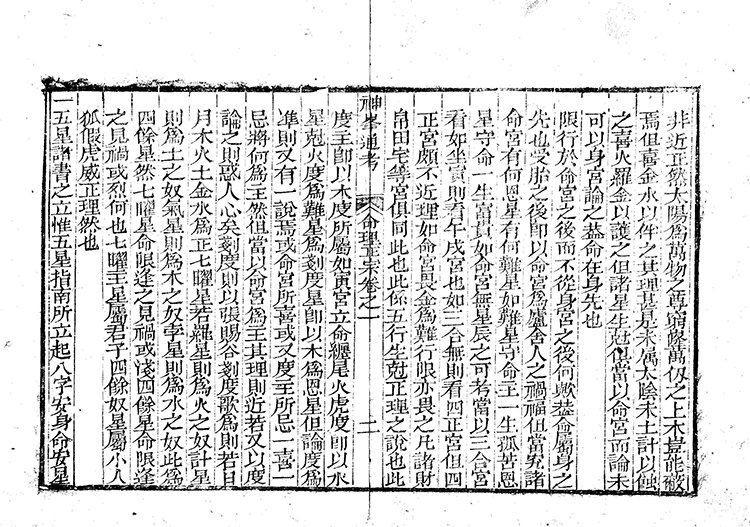 非近正然太陽爲萬物之尊崩條萬仭之上木豈能蔽
焉但喜金水以伴之其理甚是未屬太陰未土計以蝕
之喜火羅金以護之但諸星生尅俱當以命宮而論未
可以身宮論之葢命在身先也
限行於命宮之後而不從身宮之後何歟葢命屬身之
先也受胎之後即以命宮爲廬舍人之禍福但當究諸
命宮有何恩星有何難星如難星守命主一生孤苦恩
星守命一生富貴如命宮無星辰之可考當以三合宮
看如坐寅則看午戌宮也如三合無則看四正宮但四
正宮頗不近理如命宮畏金爲難行限亦畏之凡諸財
帛田宅等宮俱同此也此係五行生尅正理之說也此
神峯通考 命理正宗卷之一 二
度主即以木度所屬如寅宮立命纏尾火虎度即以水
星尅火度爲難星爲刻度星即以木爲恩星但論度爲
準則又有一說焉或命宮所喜或又度主所忌一喜一
忌將何爲主然但當以命宮爲主其理則近若又以度
論之則惑人心矣刻度則以張賜谷刻度歌爲則若日
月木火土金水爲正七曜星若羅星則爲火之奴計星
則爲土之奴氣星則爲木之奴孛星則爲水之奴此爲
四餘星然七曜星命限逢之見禍或淺四餘星命限逢
之見禍或烈何也七曜主星屬君子四餘奴星屬小人
狐假虎威正理然也
一五星諸書之立惟五星指南所立起八字安身命安星